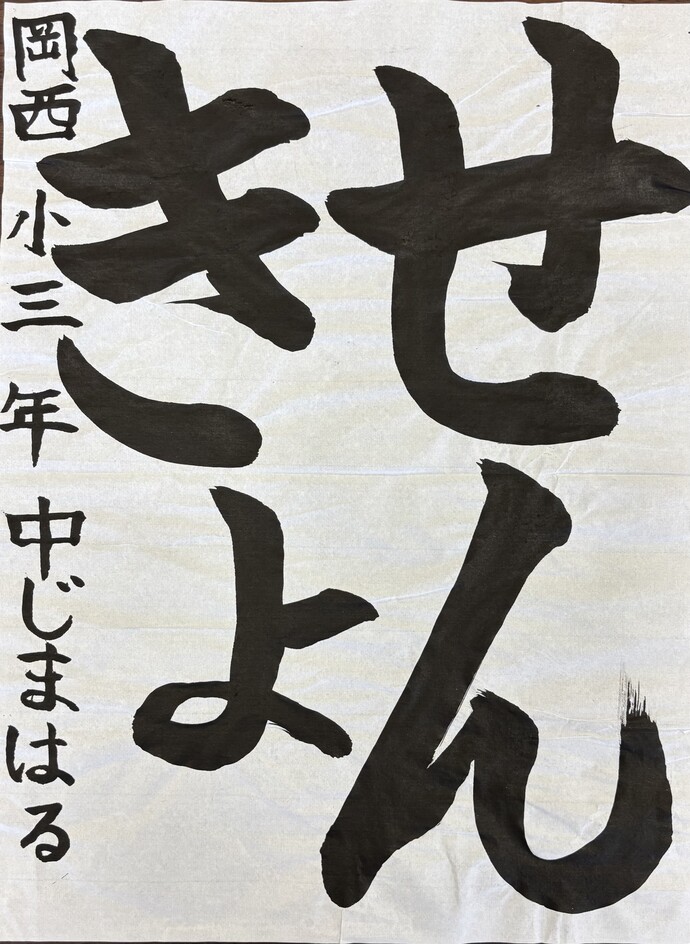 せん
きよ
岡西小三年中じまはる